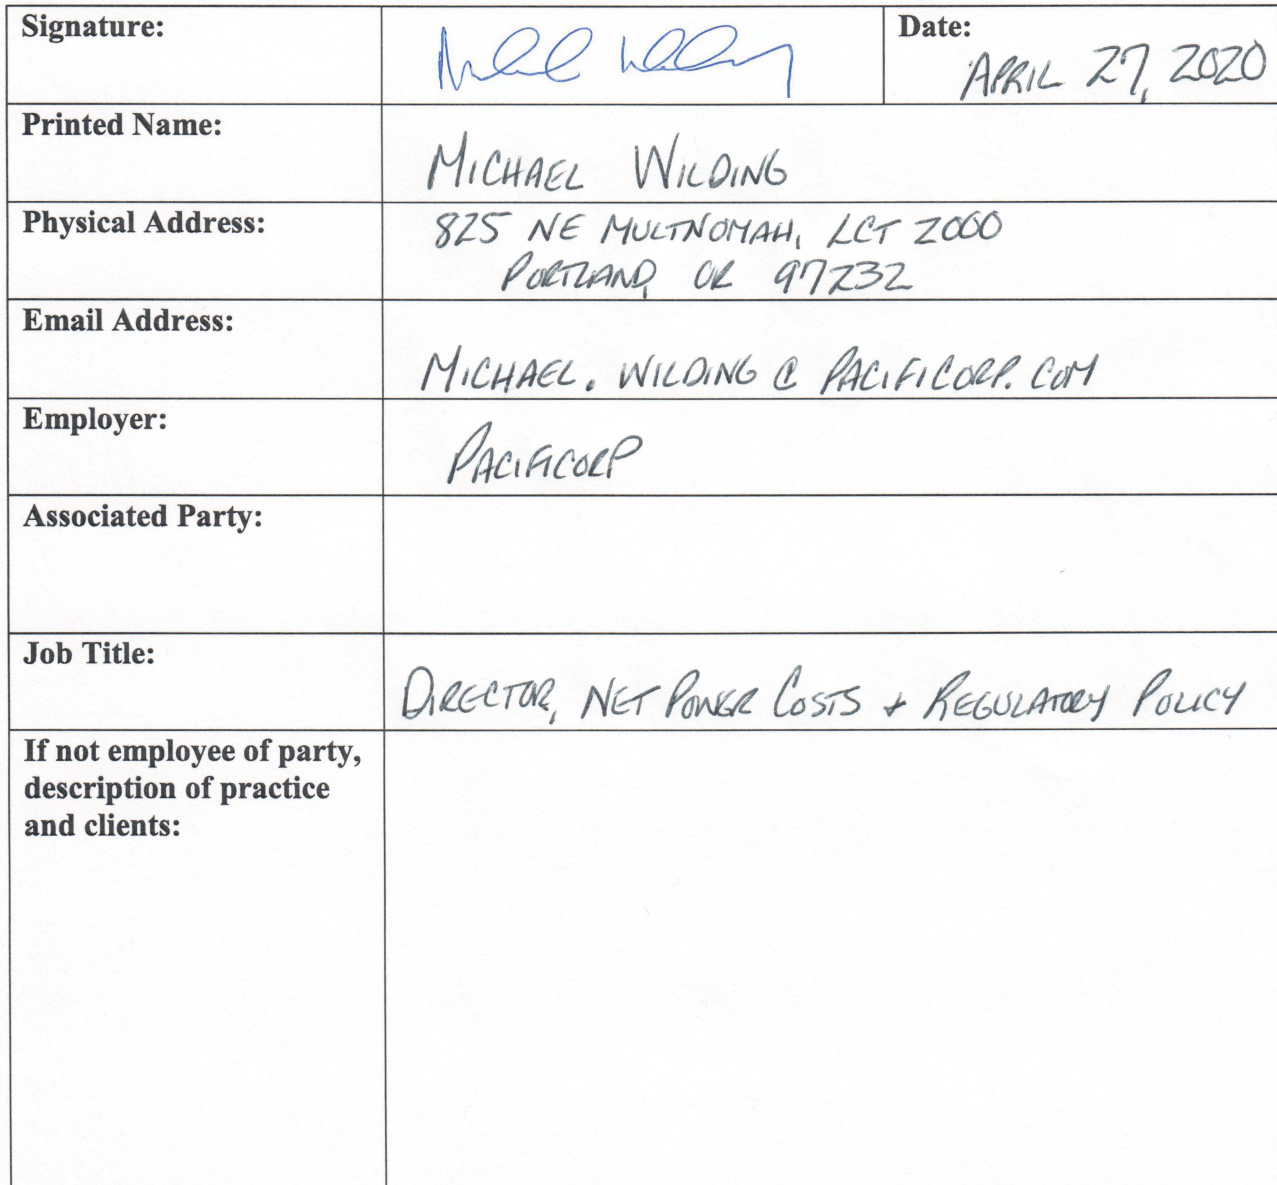 Signature:
Date:
APRIL 27, 2020
Printed Name:
MICHAEL WILDING
Physical Address:
825 NE MULTNOMAH, LCT 2000
PORTLAND, OR 97232
Email Address:
MICHAEL.WILDING@PACIFICORP.COM
Employer:
PACIFICORP
Associated Party:
Job Title:
DIRECTOR, NET POWER COSTS + REGULATORY POLICY
If not employee of party,
description of practice
and clients: